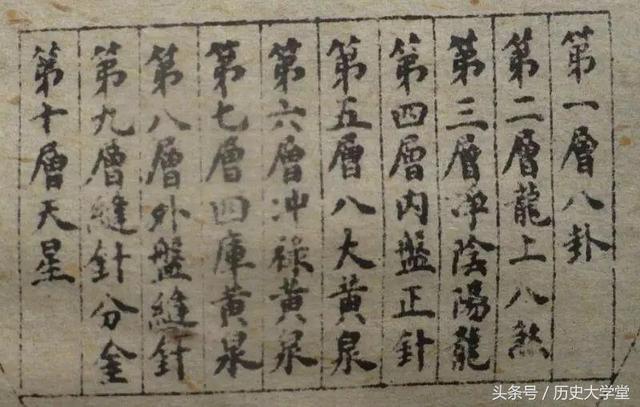 第一層八卦
第二層龍上八煞
第三層凈陰陽龍
第四層内盤正針
第五層八大黃泉
第六層冲祿黃泉
第七層四庫黃泉
第八層外盤縫針
第九層縫針分金
第十層天星
头条号 / 历史大学堂